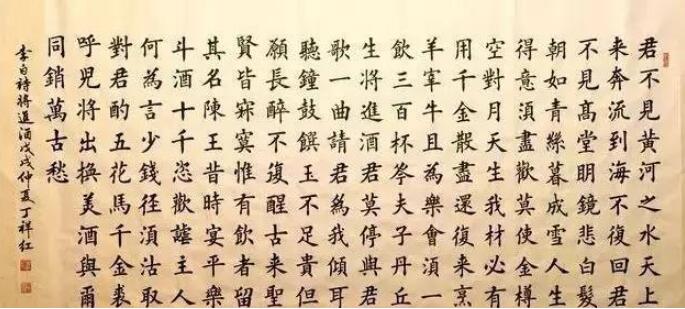 君不見黃河之水天上
来奔流到海不復回君
不見髙堂明鏡悲白髮
朝如青絲暮成雪人生
得意湏盡歡莫使金樽
空對月天生我材必有
用千金散盡還復来烹
羊宰牛且為樂會湏一
飲三百杯岑夫子丹丘
生將進酒君莫停與君
歌一曲請君為我傾耳
聽鐘鼓饌玉不足貴但
願長醉不復醒古来聖
賢皆寂寞惟有飲者留
其名陳王昔時宴平樂
斗酒十千恣歡謔主人
何為言少錢径湏沽取
對君酌五花馬千金裘
呼兒將出換美酒與爾
同銷萬古愁
李白詩將進酒戊戌仲夏丁祥红